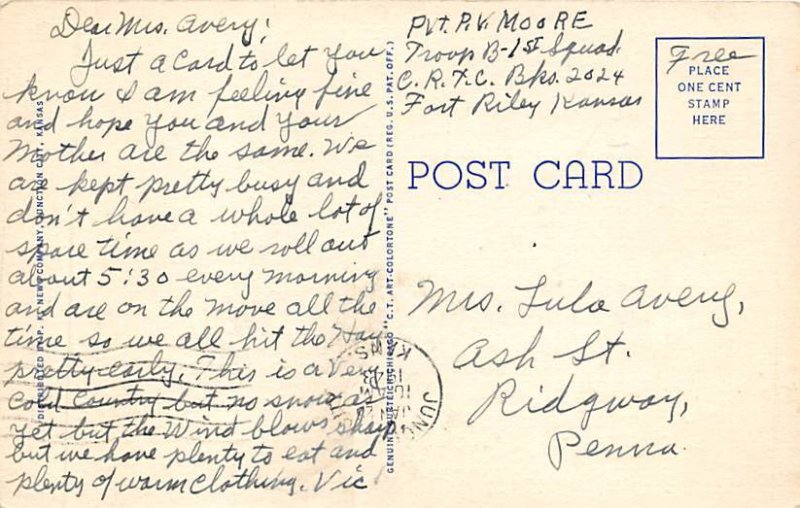 Dear Mrs. Avery;
Just a Card to let you
know I am feeling fine
and hope you and your
Mother are the same. We
are kept pretty busy and
don't have a whole lot of
spare time as we roll out
about 5:30 every morning
and are on the move all the
time so we all hit the Hay
pretty early. This is a Very
Cold Country but no snow as
yet but the Wind blows sharp
but we have plenty to eat and
plenty of warm Clothing. Vic
Pvt. P.V. MOORE
Troop B-1st Squad.
C.R.T.C. Bks. 2024
Fort Riley Kansas
Free
PLACE
ONE CENT
STAMP
HERE
POST CARD
Mrs. Lula Avery,
Ash St.
Ridgway,
Penna.
DISTRIBUTED NEWS COMPANY, JUNCTION CITY, KANSAS
GENUINE CURTEICH-CHICAGO "C.T. ART-COLORTONE" POST CARD (REG. U.S. PAT. OFF.)